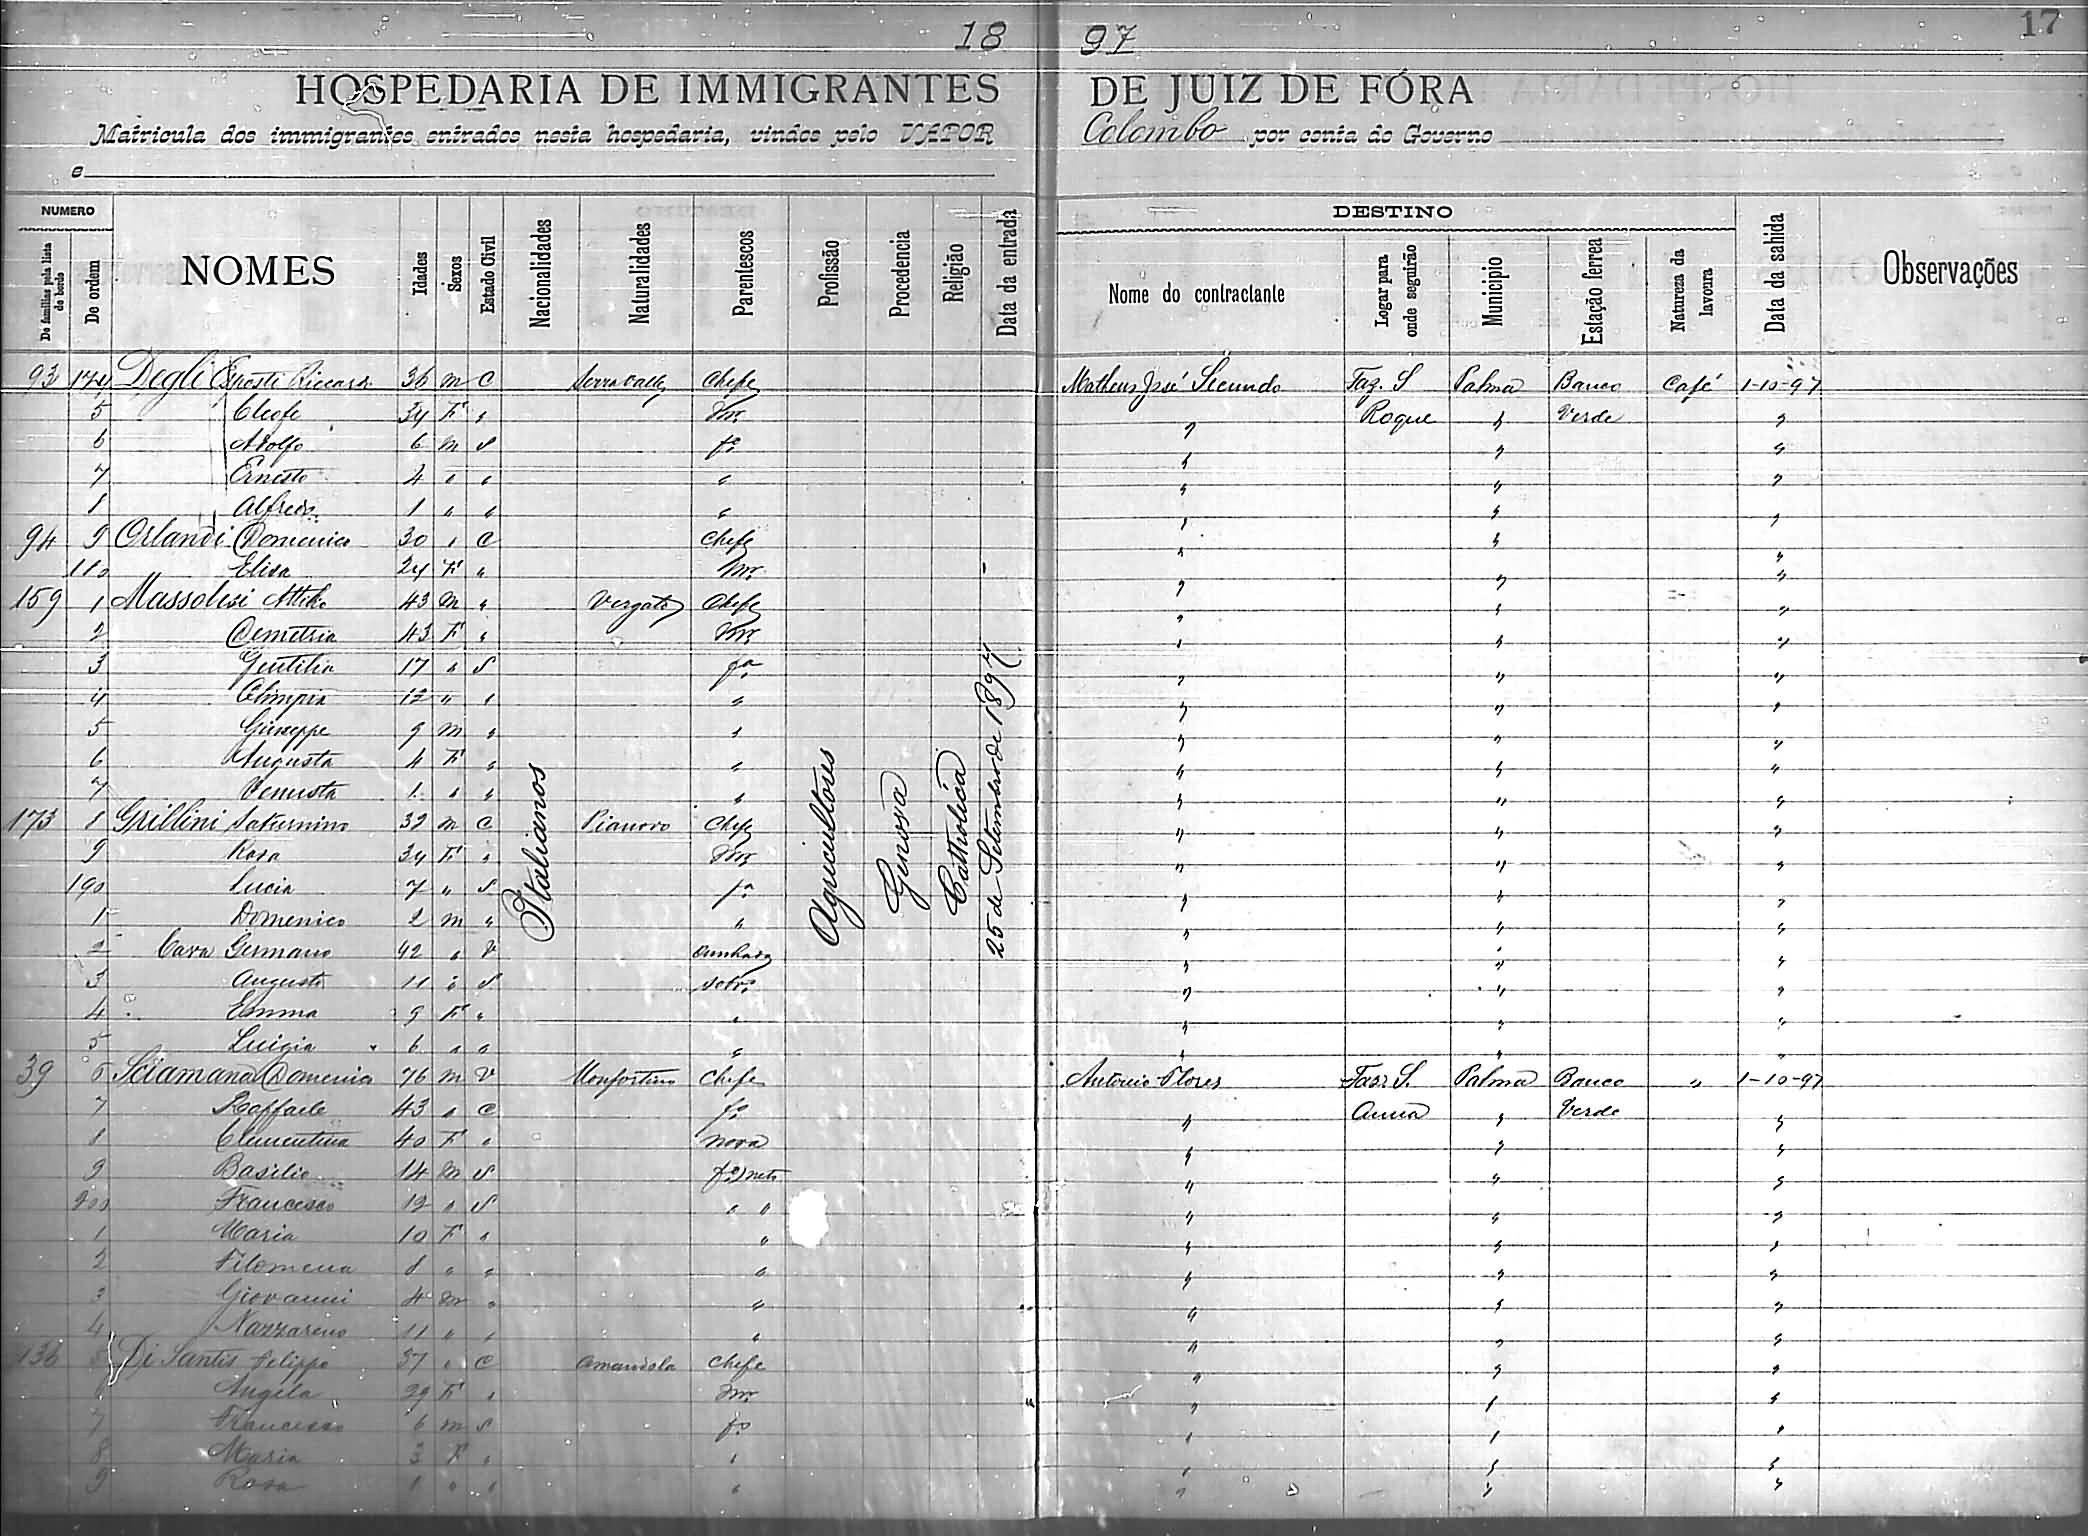 18 97 17
HOSPEDARIA DE IMMIGRANTES DE JUIZ DE FÓRA
Matricula dos immigrantes entrados nesta hospedaria, vindos pelo VAPOR Colombo por conta do Governo
e
NUMERO DESTINO
De familias pela lista de bordo De ordem NOMES Idades Sexos Estado Civil Nacionalidades Naturalidades Parentescos Profissão Procedencia Religião Data da entrada Nome do contractante Logar para onde seguirão Municipio Estação ferrea Natureza da lavoura Data da sahida Observações
93 174 Degli Esposti Riccardo 36 m C Serravalle Chefe Matheus José Secundo Faz. S Palma Banco Café 1-10-97
5 Cleofe 34 F " Mer Roque " Verde "
6 Adolfo 6 m S fo " " "
7 Ernesto 4 " " " " " "
8 Alfredo 1 " " " " " "
94 9 Orlandi Domenico 30 " C Chefe " " "
180 Elisa 24 F " Mer " " "
159 1 Massolesi Attilio 43 m " Vergato Chefe " " "
2 Demetria 43 F " Mer " " "
3 Gentilia 17 " S fa " " "
4 Olimpia 12 " " " " " "
5 Giuseppe 9 m " " " " "
6 Augusta 4 F " " " " "
7 Venusta 1 " " " " " "
173 8 Grillini Saturnino 39 m C Pianoro Chefe " " "
9 Rosa 34 F " Mer " " "
190 Lucia 7 " S fa " " "
1 Domenico 2 m " " " " "
2 Cava Germano 42 " V cunhado " " "
3 Augusto 11 " S sobr. " " "
4 Emma 9 F " " " " "
5 Luigia 6 " " " " " "
Italianos Agricultores Genova Catholica 25 de Setembro de 1897
39 6 Sciamana Domenico 76 m V Monfortino Chefe Antonio Flores Faz. S. Palma Banco " 1-10-97
7 Raffaele 43 " C fo " Anna " Verde "
8 Clementina 40 F " nora " " "
9 Basilio 14 m S fo neto " " "
200 Francesco 12 " S " " " " "
1 Maria 10 F " " " " "
2 Filomena 8 " " " " " "
3 Giovanni 4 m " " " " "
4 Nazzareno 11 " " " " " "
136 5 Di Santis Felippo 37 " C Amandola Chefe " " "
6 Angela 29 F " Mer " " "
7 Francesco 6 m S fo " " "
8 Maria 3 F " " " " "
9 Rosa 1 " " " " " "